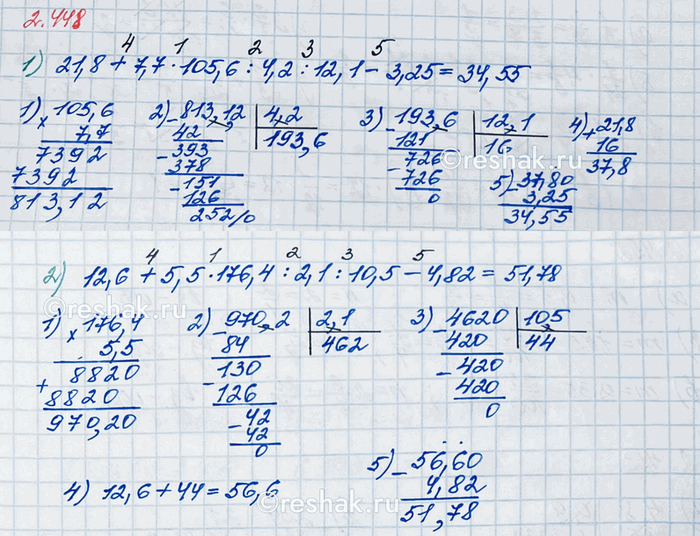 2.448
4 1 2 3 5
1) 21,8 + 7,7 · 105,6 : 4,2 : 12,1 − 3,25 = 34,55
1) × 105,6
7,7
7392
7392
813,12
2) − 813,12 | 4,2
42 193,6
− 393
378
− 151
126
252/0
3) − 193,6 | 12,1
121 16
− 726
726
0
4) + 21,8
16
37,8
5) − 37,80
3,25
34,55
4 1 2 3 5
2) 12,6 + 5,5 · 176,4 : 2,1 : 10,5 − 4,82 = 51,78
1) × 176,4
5,5
+ 8820
8820
970,20
2) − 970,2 | 2,1
84 462
− 130
126
− 42
42
0
3) − 4620 | 10,5
420 44
− 420
420
0
4) 12,6 + 44 = 56,6
5) − 56,60
4,82
51,78
reshak.ru